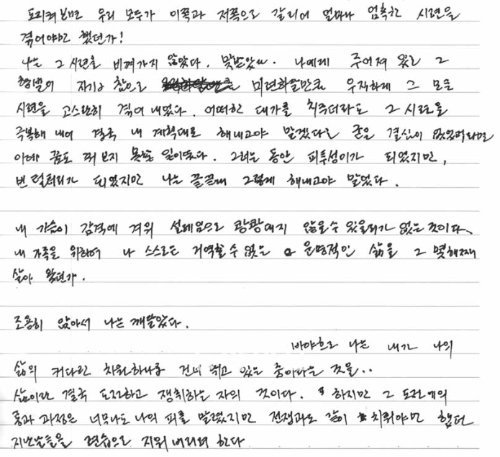 돌이켜보면 우리 모두가 이쪽과 저쪽으로 갈리어 얼마나 혹독한 시련을
겪어야만 했던가!
나는 그 시련을 비껴가지 않았다. 맞받았다. 나에게 주어져 왔던 그
형벌의 자기 참으로 미련하리만큼 우직하게 그 모든
시련을 고스란히 겪어 내었다. 어떠한 대가를 치루더라도 그 시련을
극복해 내어 결국 내 계획대로 해내고야 말겠다는 굳은 결심이 없었더라면
아예 꿈도 꿔 보지 못할 일이었다. 그러는 동안 피투성이가 되었지만,
넌덜머리가 되었지만 나는 끝끝내 그렇게 해내고야 말았다.
내 가슴이 감격에 겨워 설레임으로 쾅쾅대지 않을 수 있을리가 없는 것이다.
내 가족을 위하여 나 스스로도 거역할 수 없는 운명적인 삶을 그 몇 해째
살아 왔던가.
조용히 앉아서 나는 깨달았다.
바야흐로 나는 내가 나의
삶의 커다란 차원 하나를 건너 뛰고 있는 중이다는 것을..
삶이란 결국 도전하고 쟁취하는 자의 것이다. 하지만 그 도전에의
혹독한 과정은 너무나도 나의 피를 말렸지만 전쟁과도 같이 치뤄야만 했던
지난날들을 연습으로 지워 버리려 한다